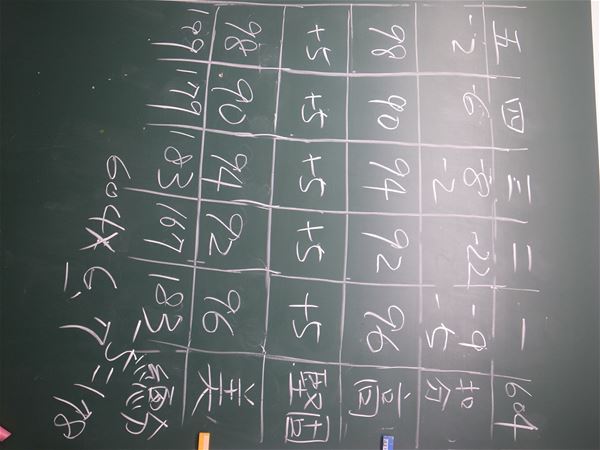 五 四 三 二 一 604
-2 -6 -8 -22 -9 扣分
-2 -5
98 90 94 92 96
+5 +5 +5 +5 +5
98 90 94 92 96
199 179 183 167 183 總分
604